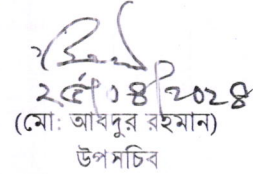 ২৫/০৪/২০২৪
(মো: আবদুর রহমান)
উপসচিব